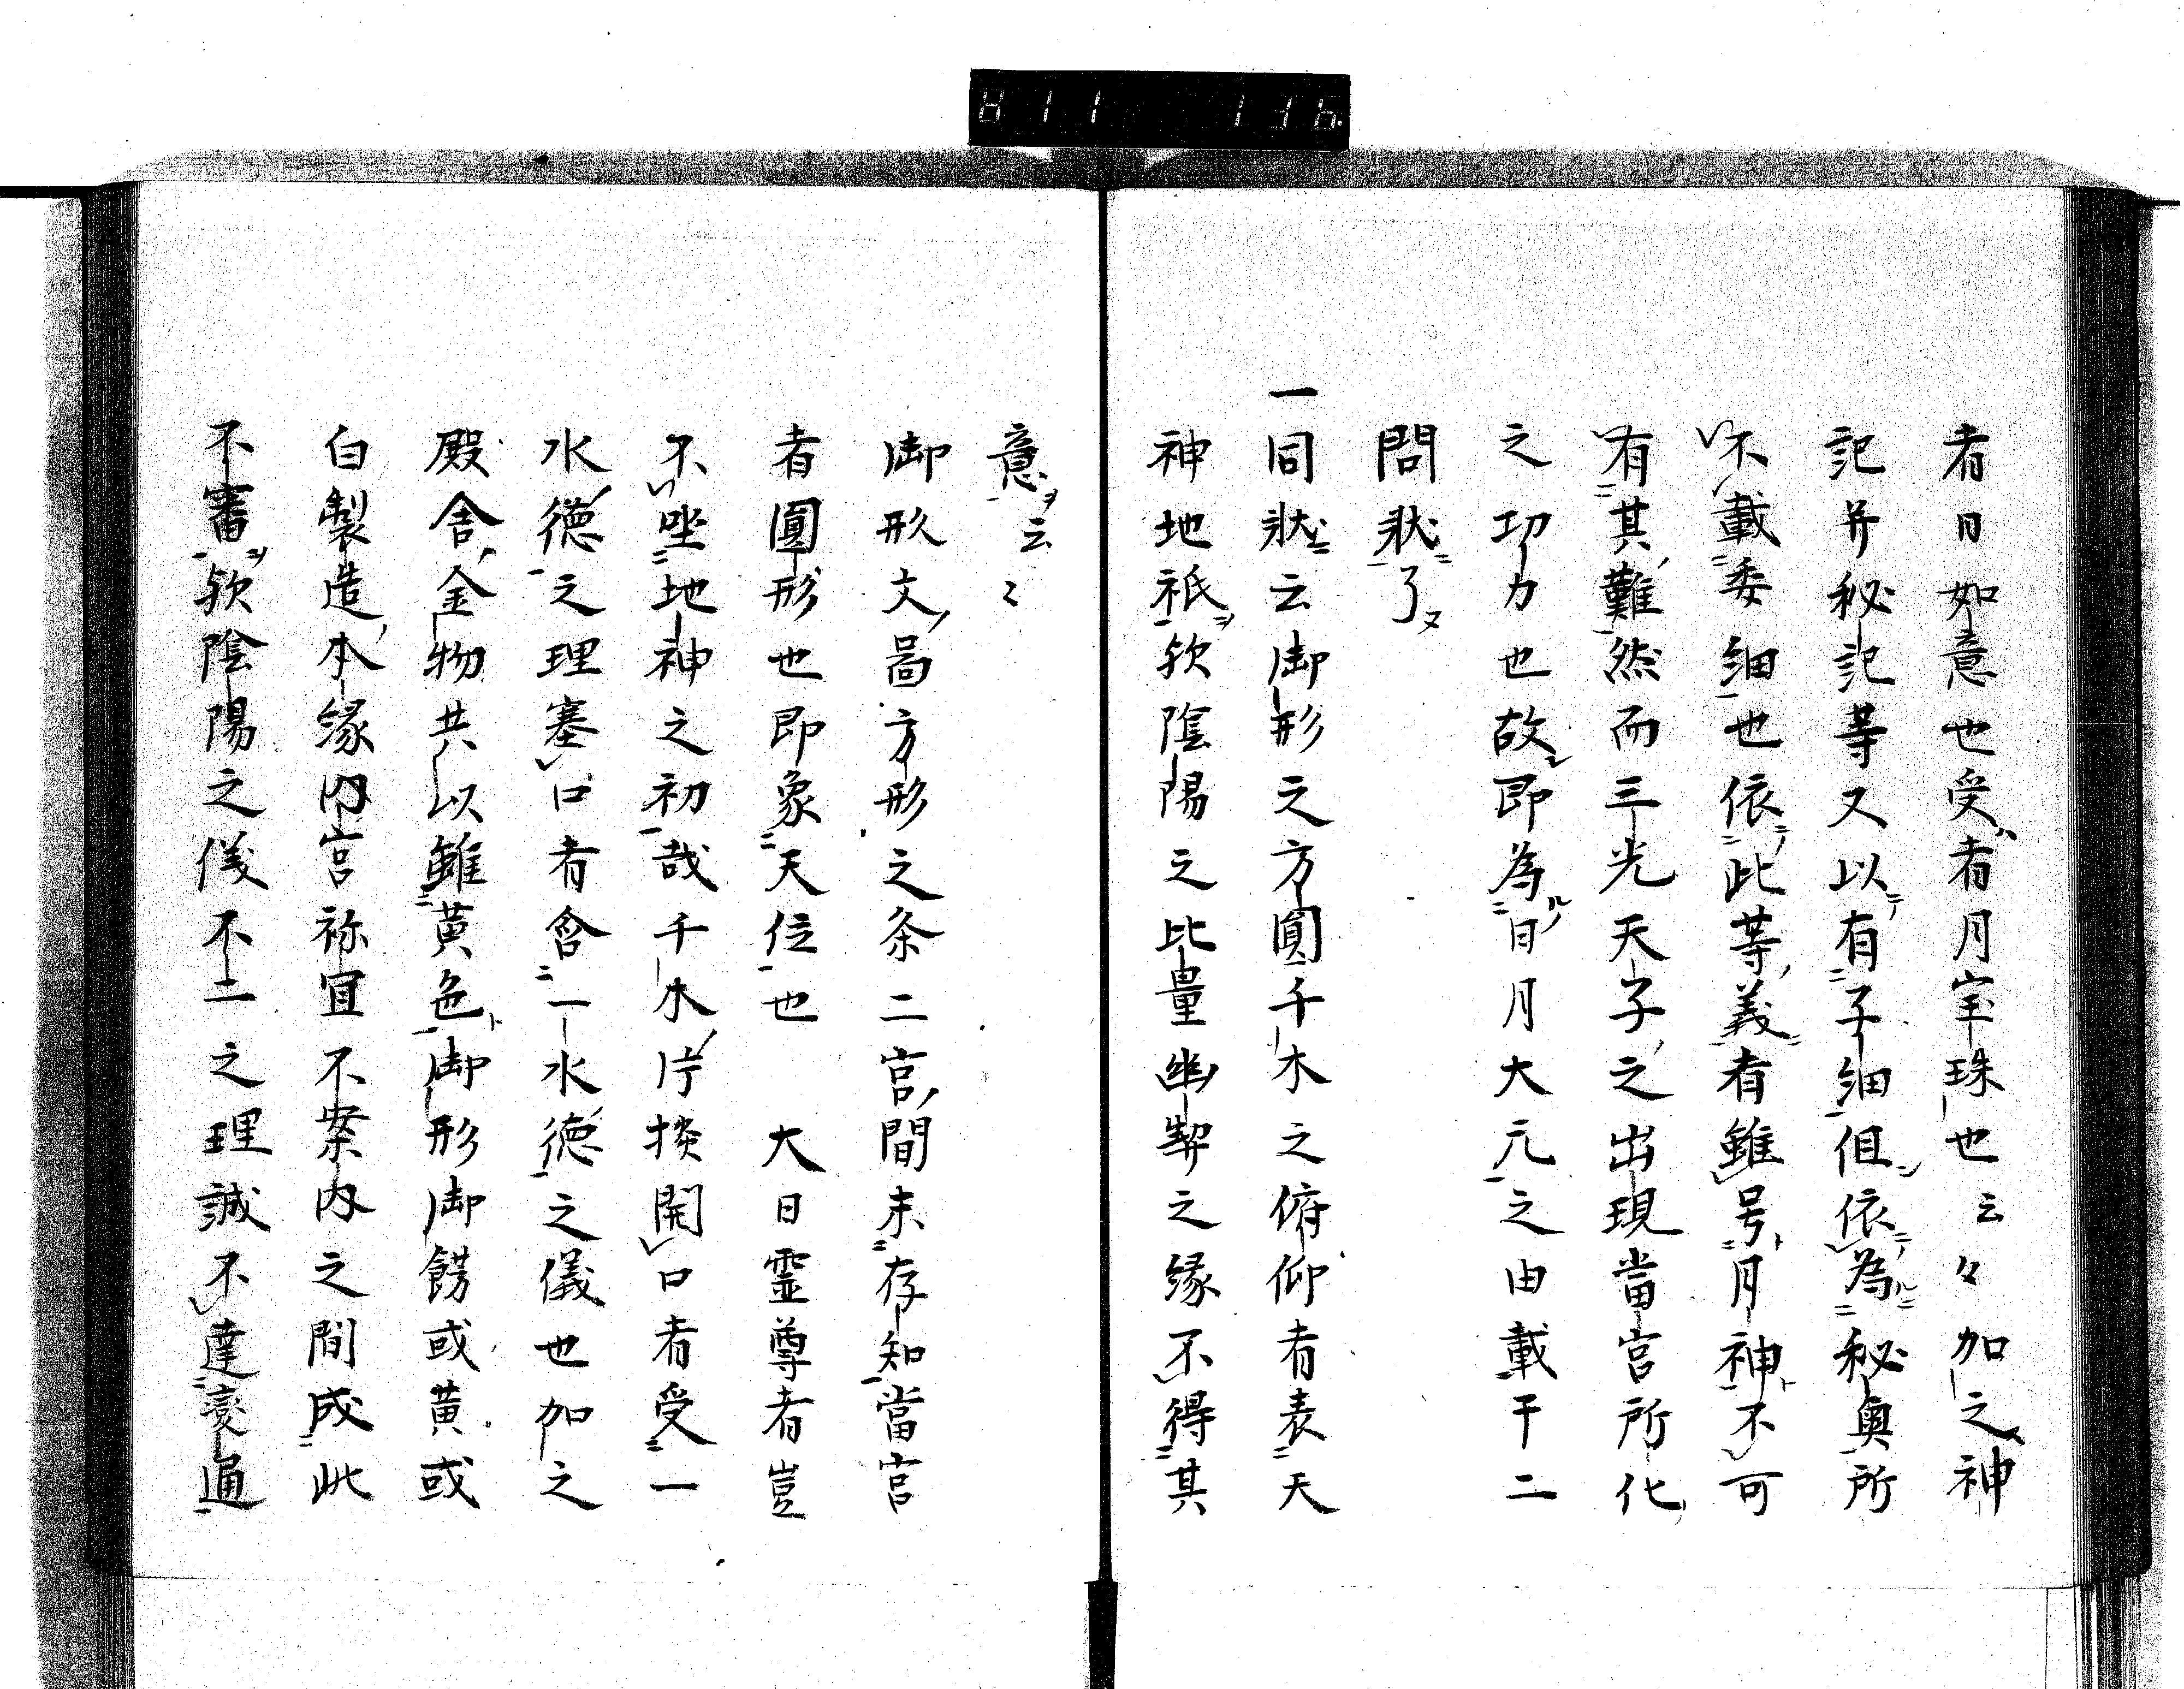 811 136
者日如意也受者月宇珠也云々加之神
記并秘記等又以有子細但依為秘奥所
不載委細也依此等義者雖号月神不可
有其難然而三光天子之出現當宮所化
之功力也故即為日月大元之由載于二
問状了
一同状云御形文方圓千木之俯仰者表天
神地祇欤陰陽之比量幽契之縁不得其
意云〻
御形文啚方形之条二宮間未存知當宮
者圓形也即象天位也 大日霊尊者豈
不坐地神之初哉千木片掞開口者受一
水徳之理塞口者含一水徳之儀也加之
殿舎金物共以雖黄色御形御餝或黄或
白製造本縁内宮祢冝不案内之間成此
不審欤陰陽之儀不二之理誠不達変通